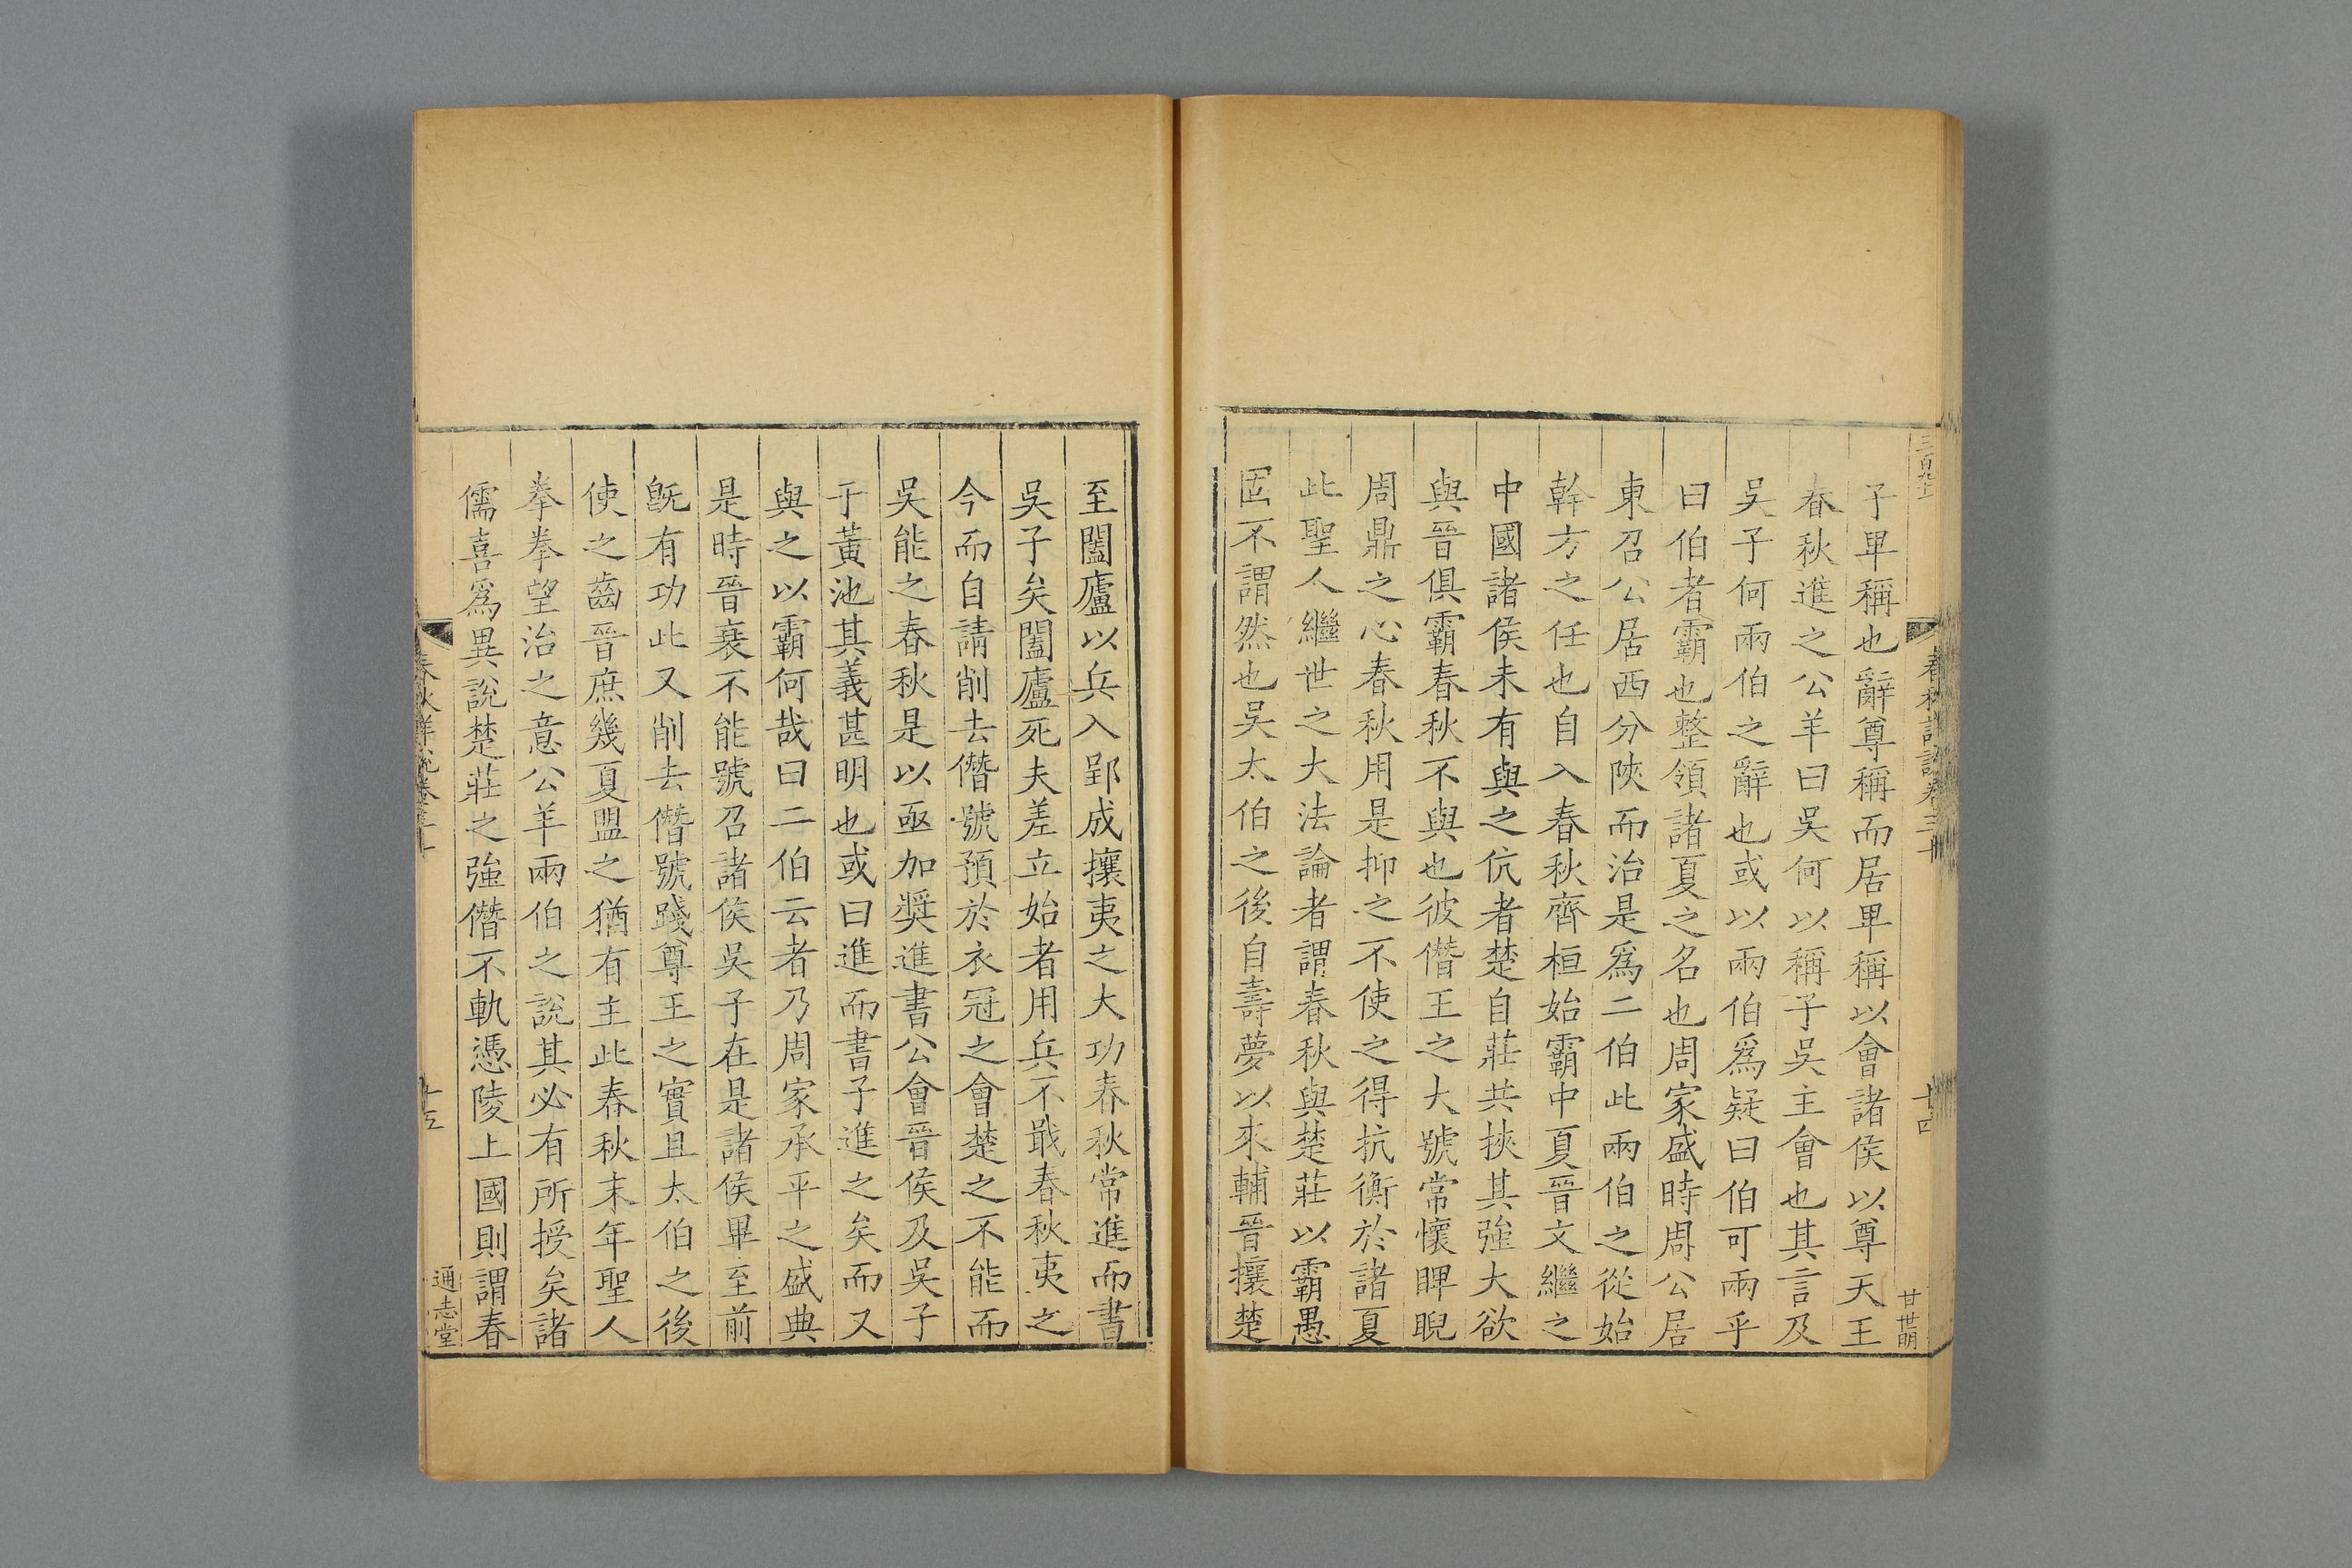 子卑稱也辭尊稱而居卑稱以會諸侯以尊天王
春秋進之公羊曰吳何以稱子吳主會也其言及
吳子何兩伯之辭也或以兩伯爲疑曰伯可兩乎
曰伯者霸也整領諸夏之名也周家盛時周公居
東召公居西分陝而治是爲二伯此兩伯之從始
幹方之任也自入春秋齊桓始霸中夏晉文繼之
中國諸侯未有與之伉者楚自莊共挾其強大欲
與晉俱霸春秋不與也彼僭王之大號常懷睥睨
周鼎之心春秋用是抑之不使之得抗衡於諸夏
此聖人繼世之大法論者謂春秋與楚莊以霸愚
固不謂然也吳太伯之後自壽夢以來輔晉攘楚
春秋詳說卷三十
十四
甘世明
至闔廬以兵入郢成攘夷之大功春秋常進而書
吳子矣闔廬死夫差立始者用兵不戢春秋夷之
今而自請削去僭號預於衣冠之會楚之不能而
吳能之春秋是以亟加奬進書公會晉侯及吳子
于黃池其義甚明也或曰進而書子進之矣而又
與之以霸何哉曰二伯云者乃周家承平之盛典
是時晉衰不能號召諸侯吳子在是諸侯畢至前
旣有功此又削去僭號踐尊王之實且太伯之後
使之齒晉庶幾夏盟之猶有主此春秋末年聖人
拳拳望治之意公羊兩伯之說其必有所授矣諸
儒喜爲異說楚莊之強僭不軌憑陵上國則謂春
春秋詳說卷三十
十五
通志堂